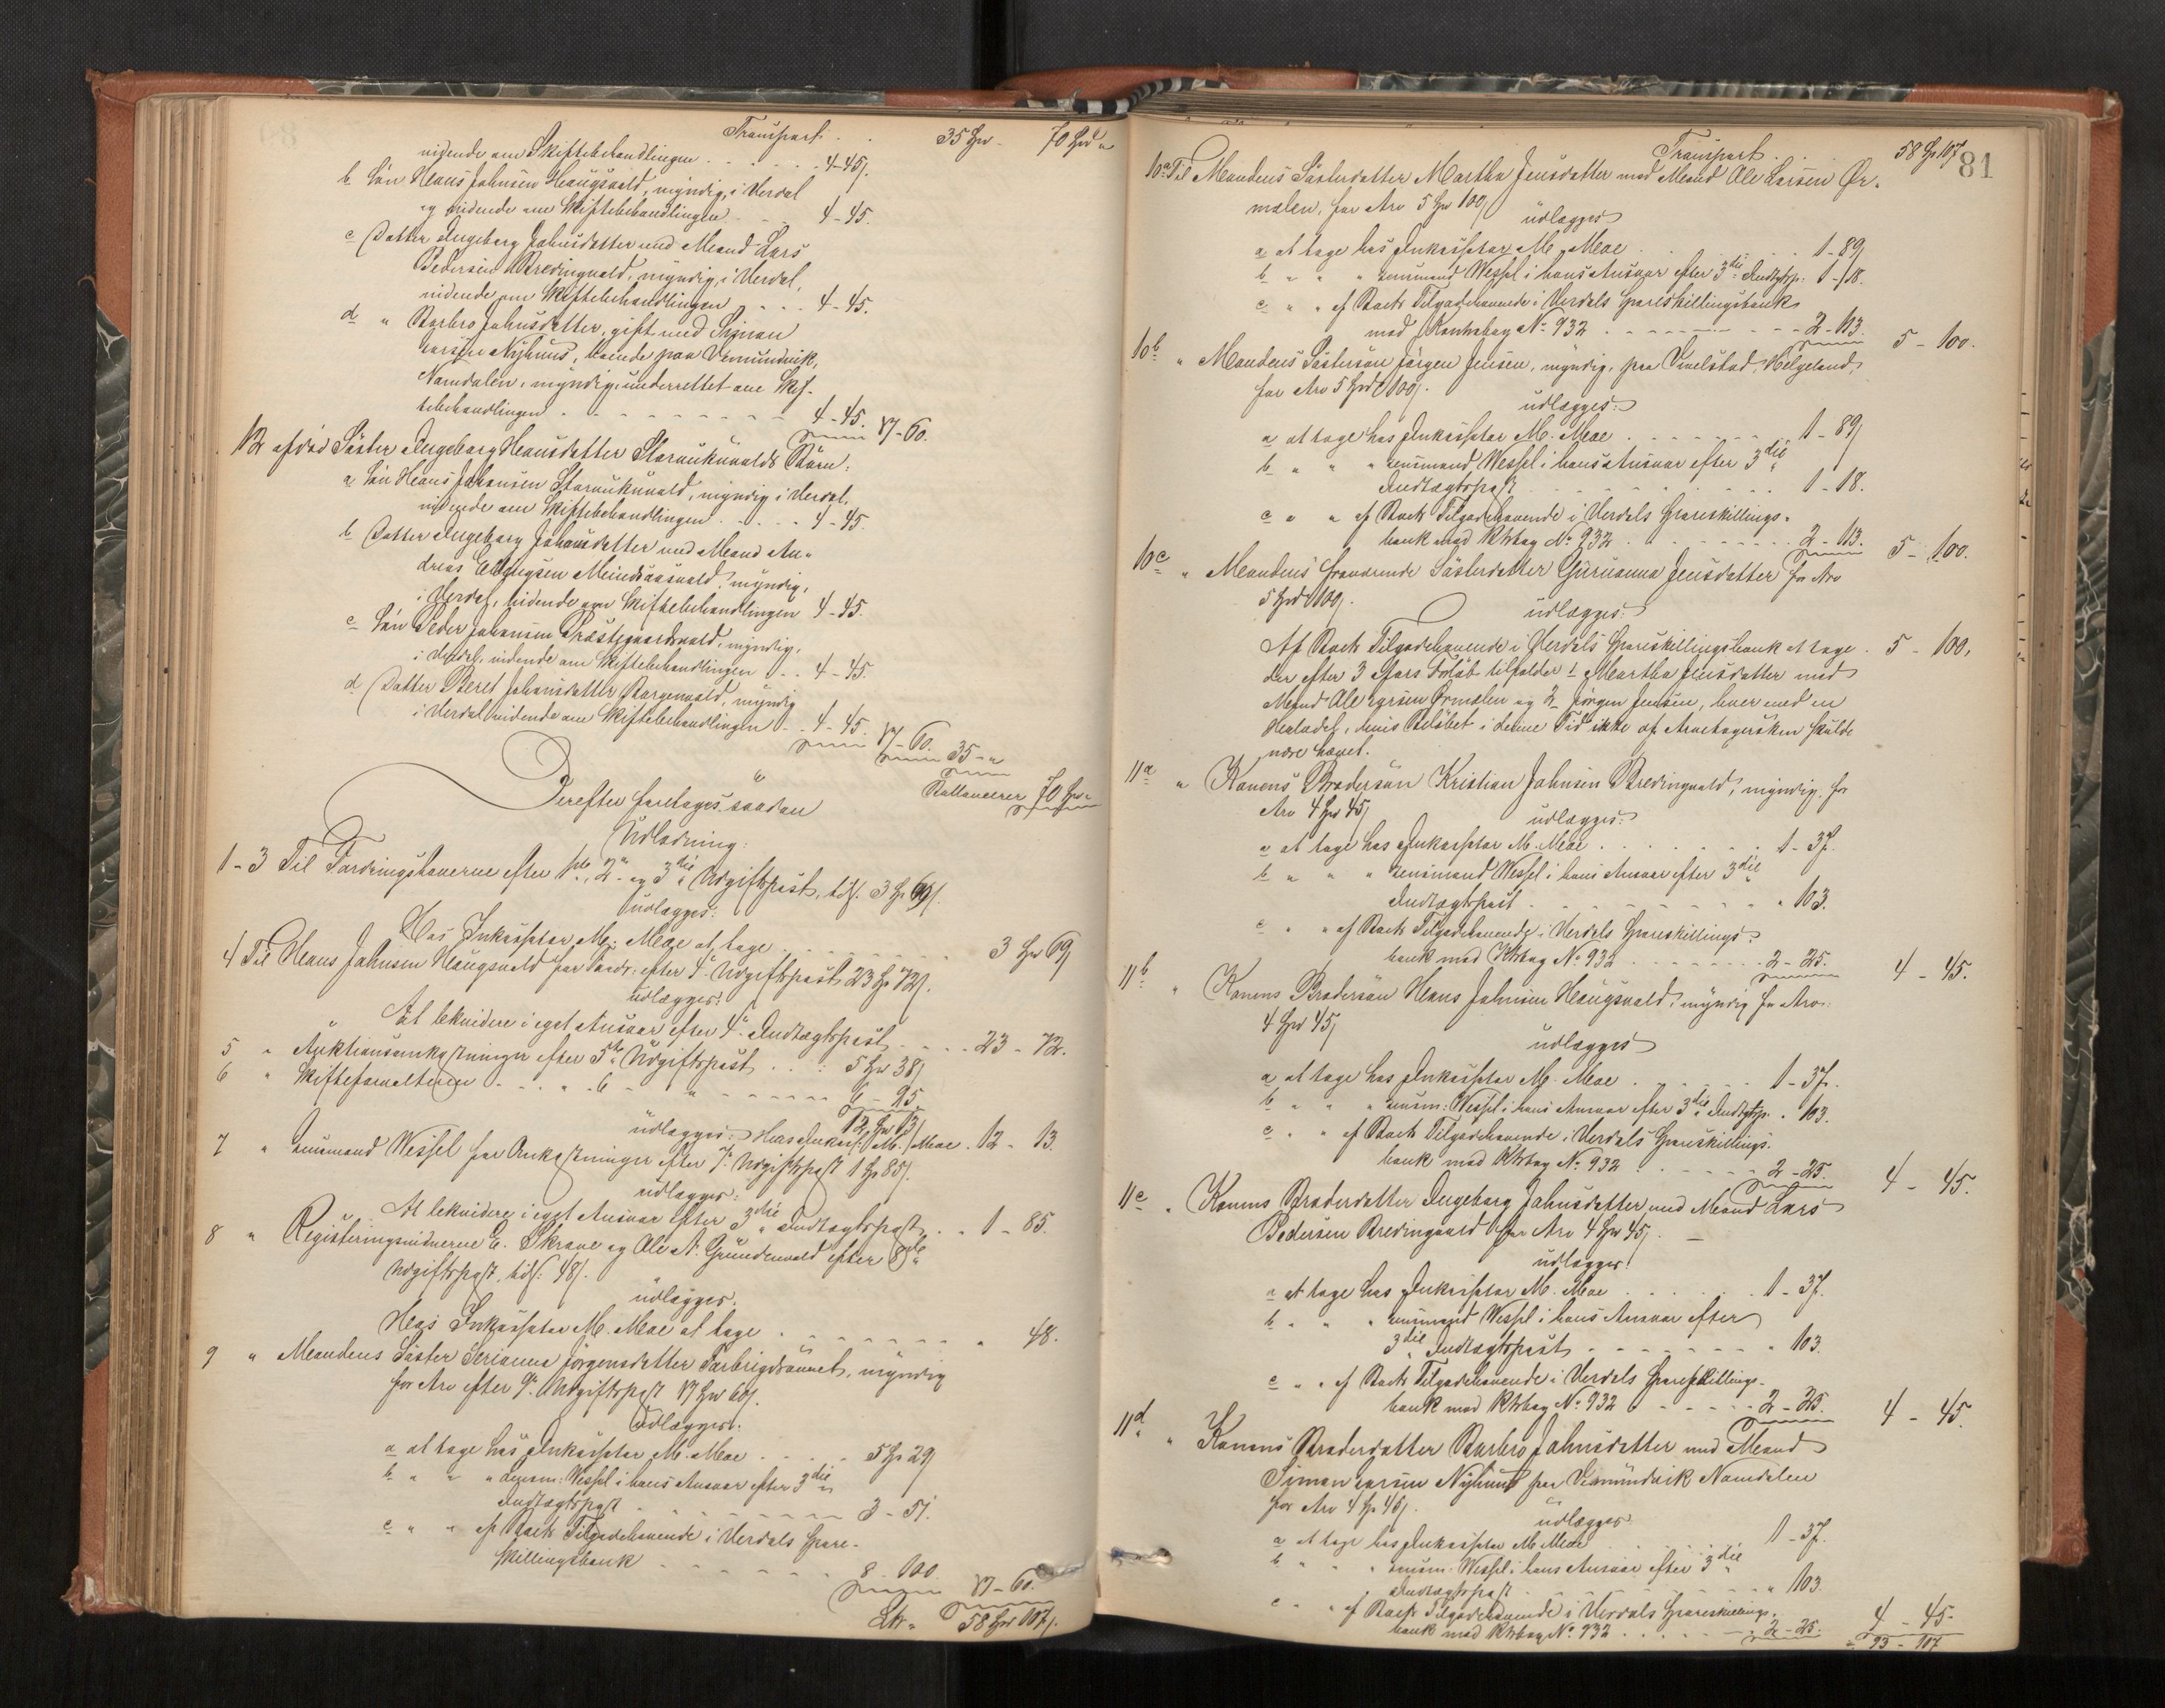 Transport . . 35 Spd - 70 Spd "
vidende om Skiftebehandlingen . . . . . . 4-45ẞ.
b Sön Hans Johnsen Haugsvald, myndig, i Verdal
og vidende om Skiftebehandlingen . . . 4-45.
c Datter Ingeborg Johnsdatter med Mand Lars
Pedersen Bredingvald, myndig, i Verdal,
vidende om Skiftebehandlingen . . . 4-45.
d " Barbro Johnsdatter, gift med Simon
Larsen Nyhuus, boende paa Vemundvik,
Namdalen, myndig, underrettet om Skif-
tebehandlingen . . . . . . . . 4-45. 17-60.
12 afdød Söster Ingeborg Hansdatter Storvukuvalds Börn:
a Sön Hans Johansen Storvukuvald, myndig i Verdal,
vidende om Skiftebehandlingen . . . . . 4-45.
b Datter Ingeborg Johansdatter med Mand An-
dreas Ellingsen Mindsaasvald, myndig,
i Verdal, vidende om Skiftebehandlingen 4-45.
c Sön Peder Johansen Præstegaardsvald, myndig,
i Verdal, vidende om Skiftebehandlingen . . 4-45.
d Datter Beret Johansdatter Borgenvald, myndig
i Verdal vidende om Skiftebehandlingen . . 4-45. 17-60. 35-"
Ballancerer 70 Spd "
Derefter foretages saadan
Udlodning:
1-3 Til Fordringshaverne efter 1ste, 2den og 3die Udgiftspost, tils. 3 Sp 69ẞ.
udlægges:
Hos Inkassator M. Moe at tage . . . . . . . . 3 Spd 69ẞ
4 Til Hans Johnsen Haugsvald for Fordr: efter 4de Udgiftspost 23 Sp 72ẞ.
udlægges:
At lekvidere i eget Ansvar efter 4de Indtægtspost . . . . 23-72.
5 " Auktionsomkostninger efter 5te Udgiftspost . . : 5 Spd 38ẞ
6 " Skifteforvalteren . . . " 6 - " - - - - 6-95
12 Spd 13ẞ
udlægges: Hos Inkass. M. Moe . 12-13.
7 " Lensmand Wessel for Omkostninger efter 7de Udgiftspost 1 Sp 85ẞ.
udlægges:
At lekvidere i eget Ansvar efter 3die Indtægtspost . . 1-85.
8 " Registeringsvidnerne E. Skrove og Ole A. Grundenvald efter 8de
Udgiftspost, tils: 48ẞ.
udlægges.
Hos Inkassator M. Moe at tage . . . . . . . " 48.
9 " Mandens Söster Serianna Jörgensdatter Forbrigdsaunet, myndig
for Arv efter 9de Udgiftspost 17 Spd 60ẞ.
Udlægges:
a at tage hos Inkassator M. Moe . . . . 5 Sp 29
b " " " Lensm: Wessel i hans Ansvar efter 3die
Indtægtspost . . . . . . . . 3-51.
c " " af Boets Tilgodehavende i Verdals Spare-
skillingsbank . . . . . . . 8-100 17-60.
Ltr. 58 Spd 107ẞ.
81
Transport . . . 58 Sp 107
10a Til Mandens Sösterdatter Martha Jensdatter med Mand Ole Larsen Ör-
melen, for Arv 5 Spd 100ẞ
udlægges
a at tage hos Inkassator M. Moe . . . . 1-89ẞ
b " " " Lensmand Wessel i hans Ansvar efter 3die Indtgtsp. 1-18.
c " " af Boets Tilgodehavende i Verdals Spareskillingsbank
med Kontrabog No 932 . . . . . . . 2-113. 5-100.
10b " Mandens Söstersön Jörgen Jensen, myndig, paa Vevelstad, Helgeland,
for Arv 5 Spd 100ẞ.
udlægges:
a at tage hos Inkassator M. Moe . . . . . . 1-89ẞ
b " " " Lensmand Wessel i hans Ansvar efter 3die
Indtægtspost . . . . . . . . 1-18.
c " " af Boets Tilgodehavende i Verdals Spareskillings-
bank med Ktrbog No 932 . . . . . . . 2-113. 5-100.
10c " Mandens fraværende Sösterdatter Gurianna Jensdatter for Arv
5 Spd 100ẞ.
udlægges:
Af Boets Tilgodehavende i Verdals Spareskillingsbank at tage . 5-100,
der efter 3 Aars Forlöb tilfalder 1 Martha Jensdatter med
Mand Ole Larsen Örmelen og 2 Jörgen Jensen, hver med en
Halvdel, hvis Belöbet i denne Tid ikke af Arvetagersken skulde
være hævet.
11a " Konens Brodersön Kristian Johnsen Bredingvald, myndig, for
Arv 4 Spd 45ẞ
udlægges:
a at tage hos Inkassator M. Moe . . . . . . . 1-37.
b " " " Lensmand Wessel i hans Ansvar efter 3die
Indtægtspost . . . . . . . . " 103.
c " " af Boets Tilgodehavende i Verdals Spareskillings-
bank med Ktrbog No 932 . . . . . . . 2-25. 4-45.
11b " Konens Brodersön Hans Johnsen Haugsvald, myndig for Arv:
4 Spd 45ẞ
udlægges
a at tage hos Inkassator M. Moe . . . . . . 1-37.
b " " " Lensm: Wessel i hans Ansvar efter 3die Indtgtsp. " 103.
c " " af Boets Tilgodehavende i Verdals Spareskillings-
bank med Ktrbog No 932 . . . . . . 2-25. 4-45.
11c " Konens Broderdatter Ingeborg Johnsdatter med Mand Lars
Pedersen Bredingvald for Arv 4 Spd 45ẞ.
udlægges:
a at tage hos Inkassator M. Moe . . . . . . 1-37.
b " " " Lensmand Wessel i hans Ansvar efter
3die Indtægtspost . . . . . . . " 103.
c " " af Boets Tilgodehavende i Verdals Spareskillings-
bank med Ktrbog No 932 . . . . . . 2-25. 4-45.
11d " Konens Broderdatter Barbro Johnsdatter med Mand
Simon Larsen Nyhuus paa Vemundvik Namdalen
for Arv 4 Sp 45ẞ.
udlægges
a at tage hos Inkassator M Moe . . . . 1-37.
b " " " Lensm: Wessel i hans Ansvar efter 3die
Indtægtspost . . . . . . . . " 103.
c " " af Boets Tilgodehavende i Verdals Spareskillings-
bank med Ktrbog No 932 . . . . . . 2-25. 4-45.
93-107